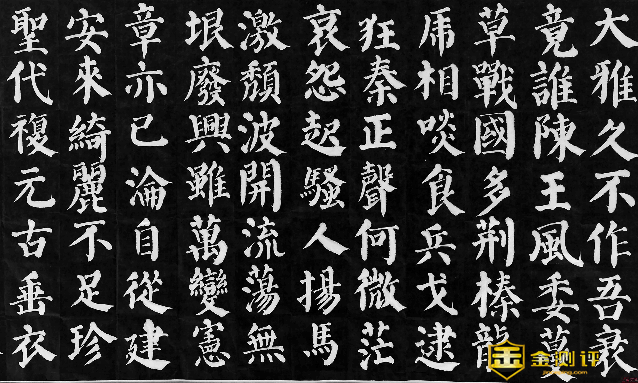 大雅久不作吾衰
竟誰陳王風委蔓
草戰國多荆榛龍
虎相啖食兵戈逮
狂秦正聲何微茫
哀怨起騷人揚馬
激頹波開流蕩無
垠廢興雖萬變憲
章亦已淪自從建
安來綺麗不足珍
聖代複元古垂衣
金测评